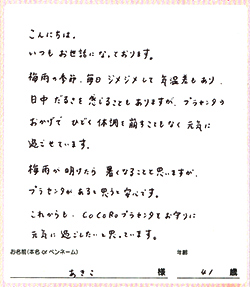 こんにちは。
いつもお世話になっております。
梅雨の季節、毎日ジメジメして気温差もあり、
日中だるさを感じることもありますが、プラセンタの
おかげでひどく体調を崩すこともなく元気に
過ごせています。
梅雨が明けたら暑くなることと思いますが、
プラセンタがあると思うと安心です。
これからも、COCOROプラセンタをお守りに
元気に過ごしたいと思っています。
お名前(本名 or ペンネーム) 年齢
あきこ 様 41 歳